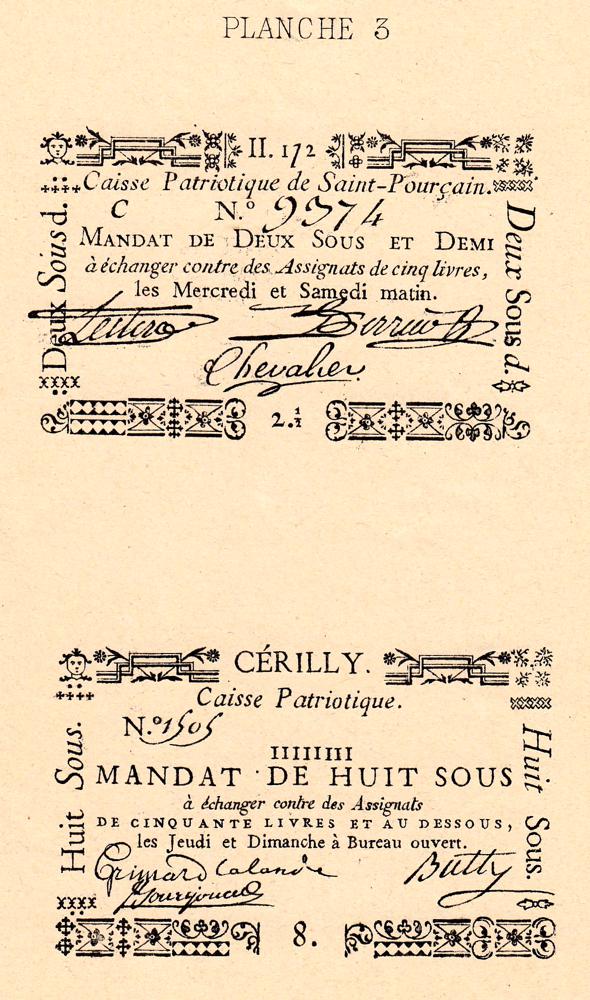 PLANCHE 3
II. 1/2
Caisse Patriotique de Saint-Pourçain.
C N.º 9374
MANDAT DE DEUX SOUS ET DEMI
à échanger contre des Assignats de cinq livres,
les Mercredi et Samedi matin.
Deux Sous d.
Deux Sous d.
Chevalier
2.½
CÉRILLY.
Caisse Patriotique.
N.º 1505
IIIIIIII
MANDAT DE HUIT SOUS
à échanger contre des Assignats
DE CINQUANTE LIVRES ET AU DESSOUS,
les Jeudi et Dimanche à Bureau ouvert.
Huit Sous.
Huit Sous.
Grimard Lalande Butty
8.